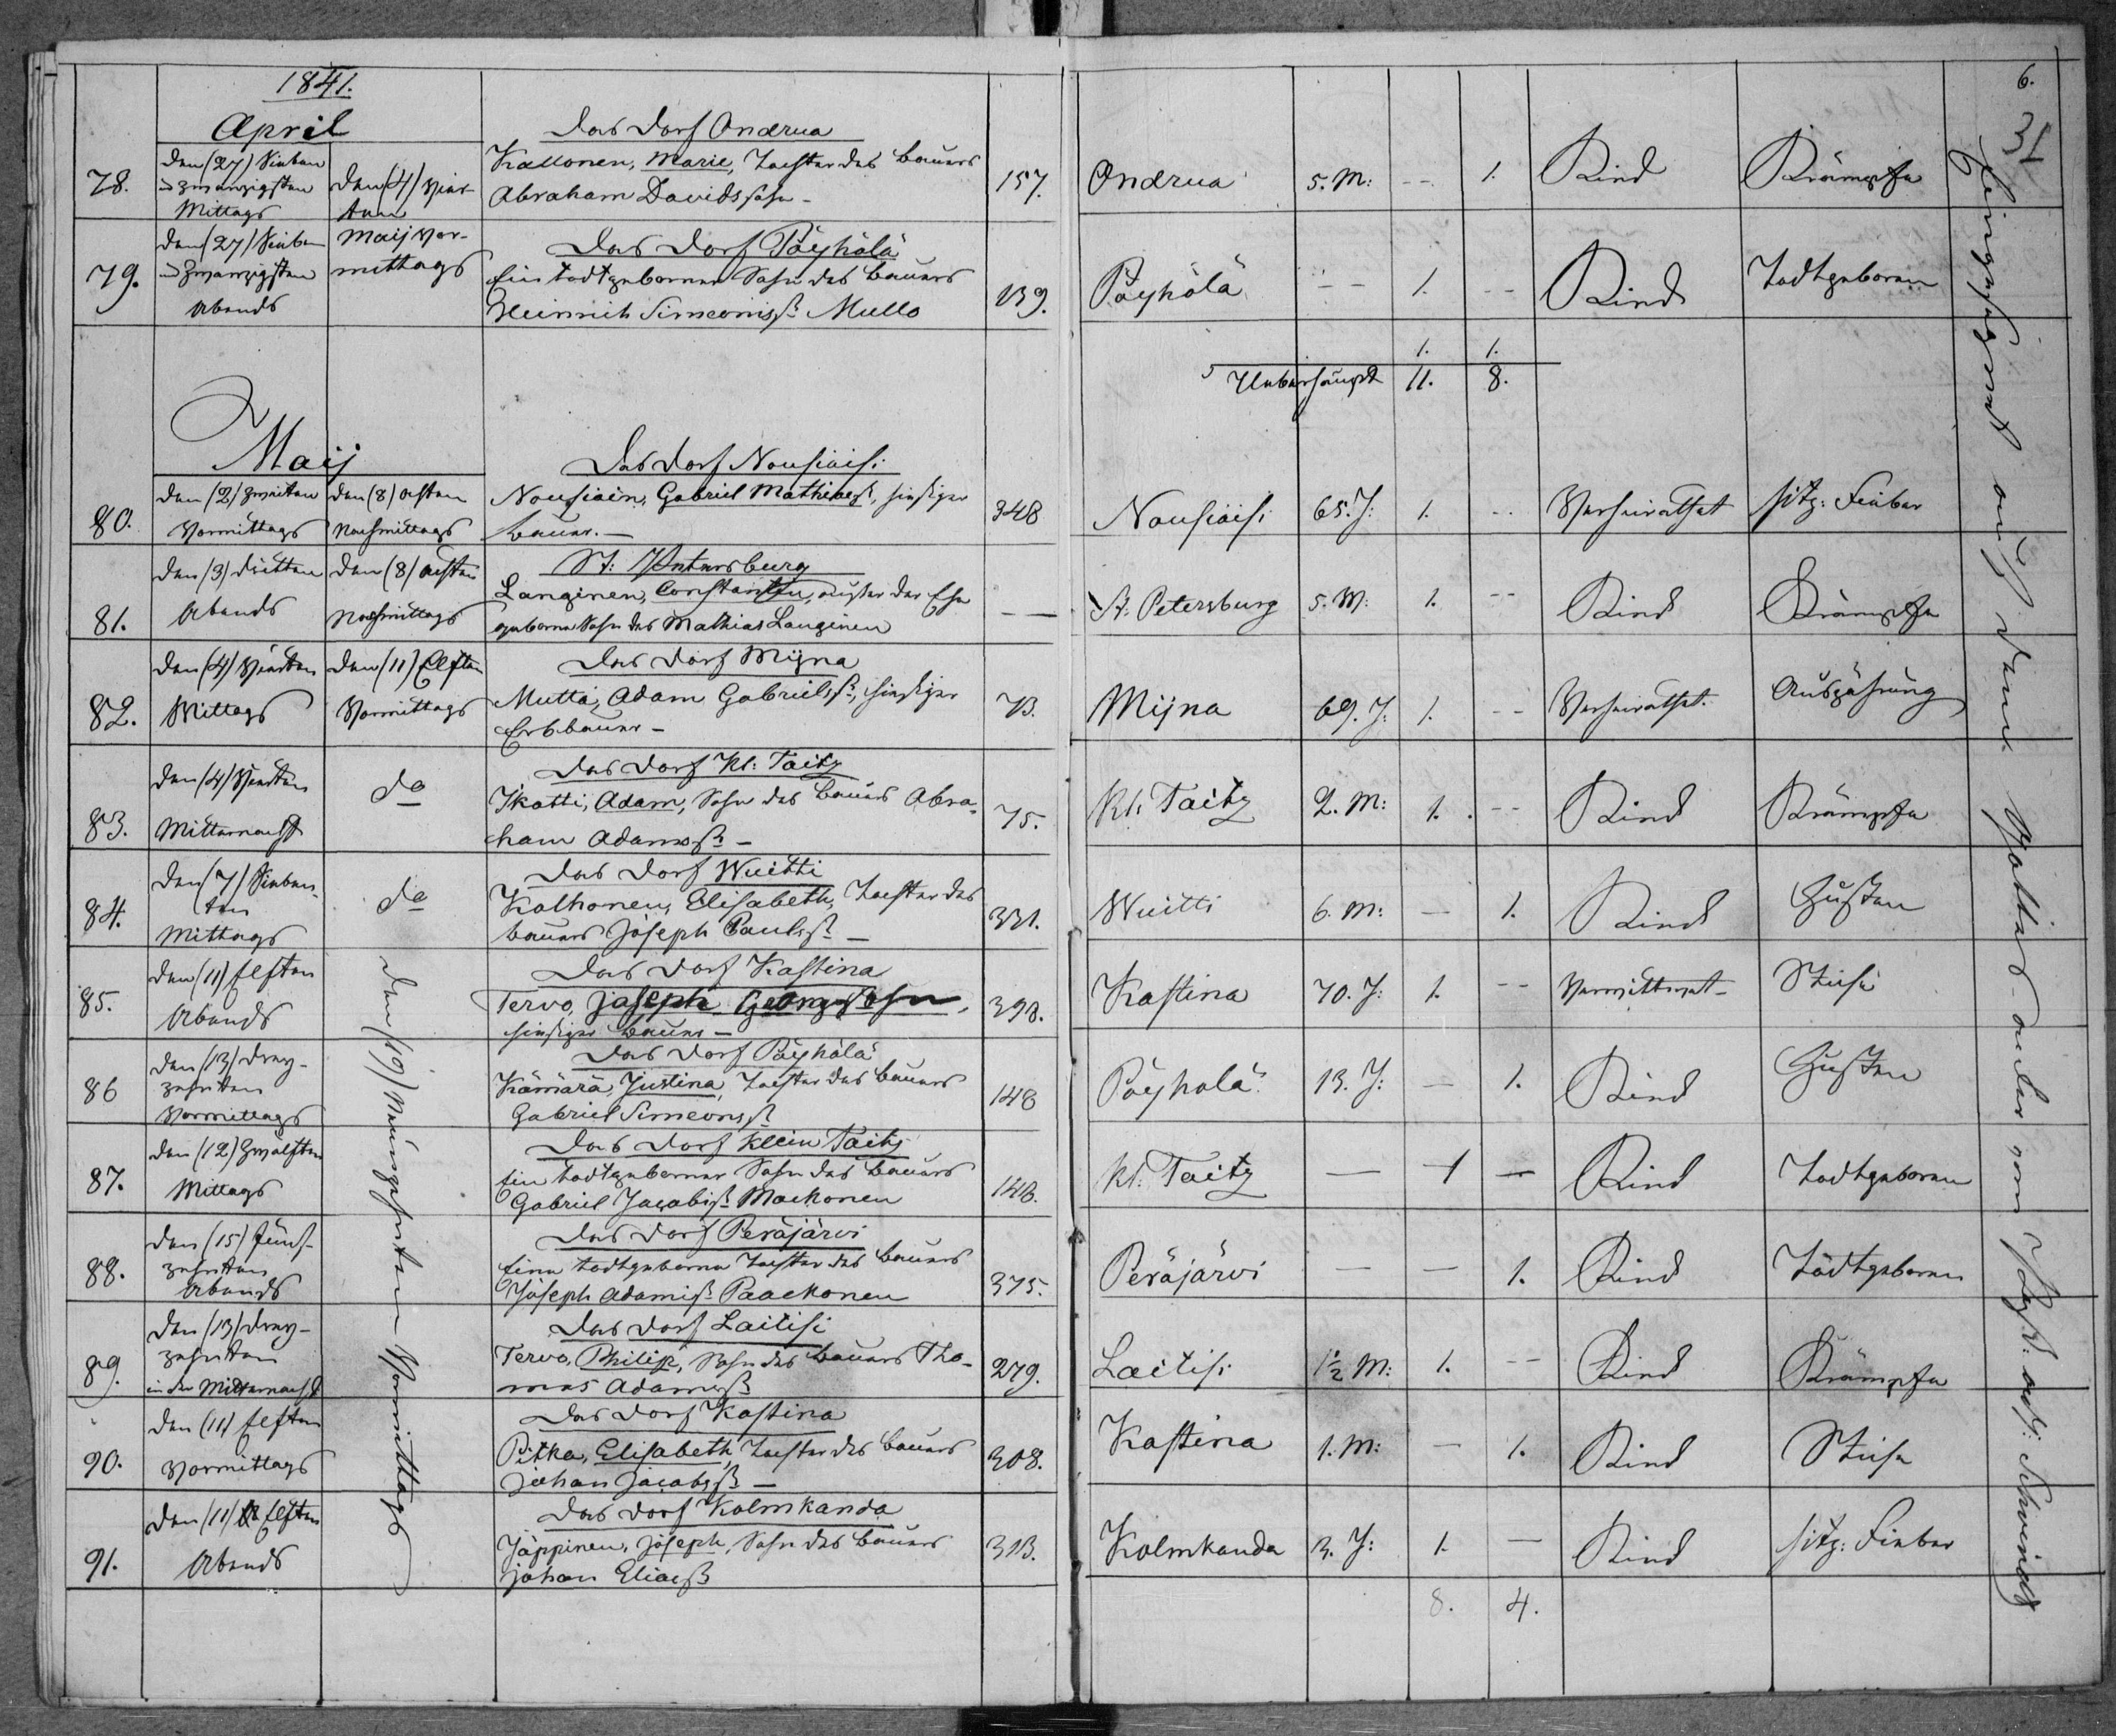 1841.
April
6.
31
Das Dorf Andrua
78.
den (27) Sieben
u zwanzigsten
Mittags
den (4) vier-
ten
Kallonen, Marie, Tochter des Bauers
Abraham Davidssohn -
157.
Andrua
5. M:
--
1.
Kind
Krämpfe
79.
den (27) Sieben
u zwanzigsten
Abends
Maij Vor-
mittags
Das Dorf Pöyhölä
Ein todtgeborner Sohn des Bauers
Heinrich Simeonisß: Mullo
139.
Pöyhölä
--
1.
--
Kind
Todtgeboren
1. 1.
Ueberhaupt 11. 8.
Maij
Das Dorf Nousiaisi
80.
den (2) zweiten
Vormittags
den (8) achten
Nachmittags
Nousiain, Gabriel Mathiaeß, hiesiger
Bauer. -
348
Nousiaisi
65. J:
1.
--
Verheirathet
hitz: Fieber
St: Petersburg
81.
den (3) dritten
Abends
den (8) achten
Nachmittags
Langinen, Constantin, außer der Ehe
geborner Sohn des Mathias Langinen
—
St. Petersburg
5. M:
1.
--
Kind
Krämpfe
Das Dorf Mijna
82.
den (4) Vierten
Mittags
den (11) Elften
Vormittags
Mutta, Adam Gabrielsß:, hiesiger
Erbbauer -
73.
Mijna
69. J:
1.
--
Verheirathet.
Auszehrung
Das Dorf Kl: Taitz
83.
den (4) Vierten
Mitternacht
do
Ikatti, Adam, Sohn des Bauers Abra-
ham Adamsß: -
75.
Kl: Taitz
2. M:
1.
--
Kind
Krämpfe
Das Dorf Wuitti
84.
den (7) Sieben-
ten
Mittags
do
Kolhonen, Elisabeth, Tochter des
Bauers Joseph Paulsß: -
331.
Wuitti
6. M:
—
1.
Kind
Husten
Das Dorf Kastina
85.
den (11) Elften
Abends
den (19) Neunzehnten Vormittags
Tervo, Joseph Georgssohn,
hiesiger Bauer -
398.
Kastina
70. J:
1.
--
Verwittwet -
Das Dorf Pöyhölä
86
den (13) drey-
zehnten
Vormittags
Kämärä, Justina, Tochter des Bauers
Gabriel Simeonsß
148
Pöyhölä
13. J:
—
1.
Kind
Husten
Das Dorf Klein Taitz
87.
den (12) Zwölften
Mittags
Ein todtgeborner Sohn des Bauers
Gabriel Jacobsß Mackonen
148.
Kl: Taitz
—
1
—
Kind
Todtgeboren
Das Dorf Peräjärvi
88.
den (15) Fünf-
zehnten
Abends
Eine todtgeborne Tochter des Bauers
Joseph Adamsß: Paackonen
375.
Peräjärvi
—
—
1.
Kind
Todtgeboren
Das Dorf Laitisi
89.
den (13) drey-
zehnten
in der Mitternacht
Tervo, Philipp, Sohn des Bauers Tho-
mas Adamsß
279.
Laitisi
1½ M:
1.
--
Kind
Krämpfe
Das Dorf Kastina
90.
den (11) Elften
Vormittags
Pitka, Elisabeth, Tochter des Bauers
Johan Jacobsß -
308.
Kastina
1. M:
—
1.
Kind
Das Dorf Kolmkanda
91.
den (11) Elften
Abends
Jäppinen, Joseph, Sohn des Bauers
Johan Eliaeß
313.
Kolmkanda
3. J:
1.
—
Kind
hitz: Fieber
8. 4.
auf dem Gottes-acker vom